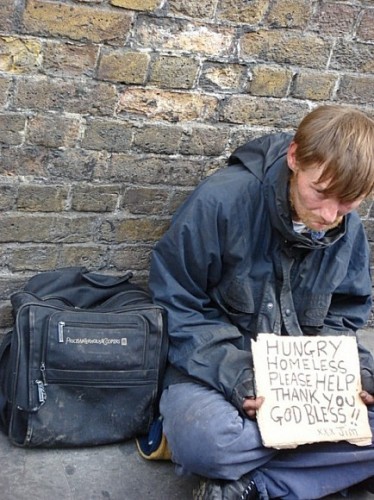 HUNGRY
HOMELESS.
PLEASE HELP
THANK YOU
GOD BLESS!!
XXX JIM